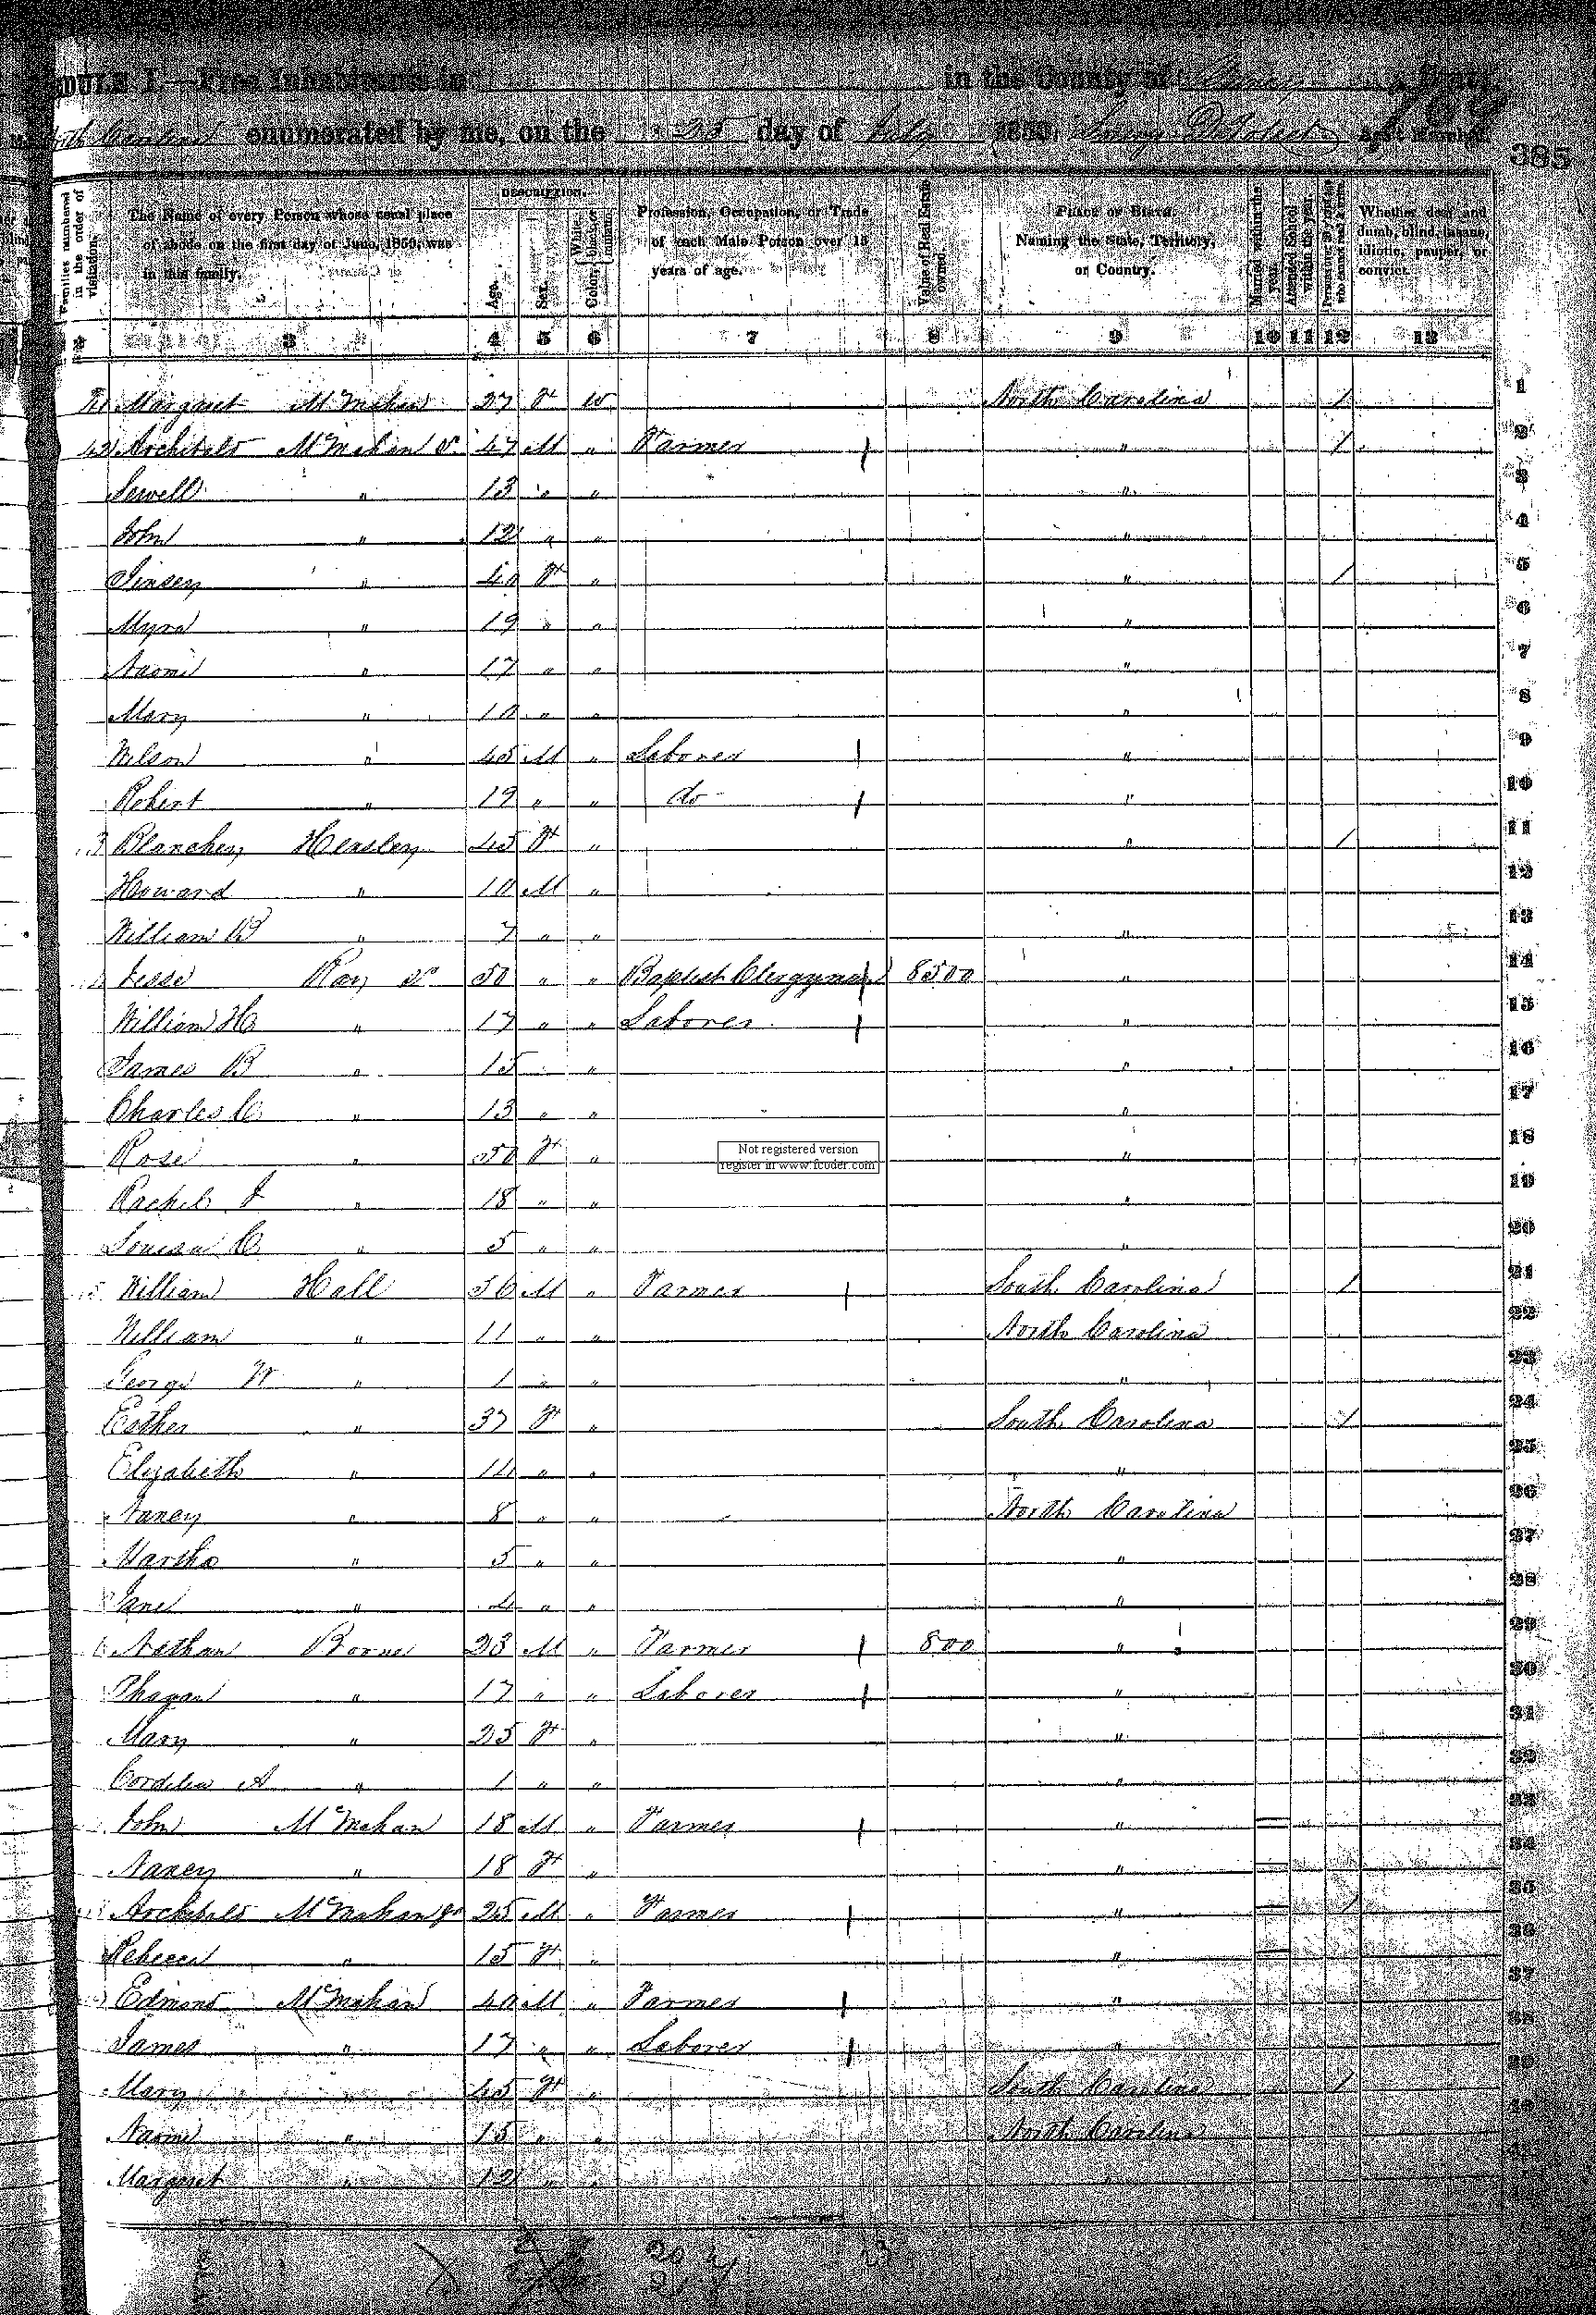 DULE I.—Free Inhabitants in in the County of Yancey State
North Carolina enumerated by me, on the 25 day of July 1850. Ass't Marshal.
385
Families numbered in the order of visitation.
The Name of every Person whose usual place of abode on the first day of June, 1850, was in this family.
DESCRIPTION.
Age.
Sex.
Color, White, black, or mulatto.
Profession, Occupation, or Trade of each Male Person over 15 years of age.
Value of Real Estate owned.
PLACE OF BIRTH. Naming the State, Territory, or Country.
Married within the year.
Attended School within the year.
Persons over 20 y'rs of age who cannot read & write.
Whether deaf and dumb, blind, insane, idiotic, pauper, or convict.
3 4 5 6 7 8 9 10 11 12 13
Margaret McMahan 27 F W North Carolina / 1
Archibald McMahan Sr 47 M " Farmer " / 2
Sewell " 13 " " " 3
John " 12 " " " 4
Jinsey " 40 F " " / 5
Myra " 19 " " " 6
Naomi " 17 " " " 7
Mary " 10 " " " 8
Wilson " 45 M " Laborer " 9
Robert " 19 " " do " 10
Blanchey Hensley 45 F " " / 11
Howard " 10 M " " 12
William B " 7 " " " 13
Jesse Ray Sr 50 " " Baptist Clergyman 8500 " 14
William H " 17 " " Laborer " 15
James B " 15 " " 16
Charles C " 13 " " " 17
Rose " 50 F " " 18
Not registered version
register in www.fcoder.com
Rachel J " 18 " " " 19
Louisa C " 5 " " " 20
William Hall 36 M " Farmer South Carolina / 21
William " 11 " " North Carolina 22
George W " 1 " " " 23
Esther " 37 F " South Carolina / 24
Elizabeth " 14 " " " 25
Nancy " 8 " " North Carolina 26
Martha " 5 " " " 27
Jane " 4 " " " 28
Nathan 23 M " Farmer 800 " 29
" 17 " " Laborer " 30
Mary " 25 F " " 31
Cordelia A " 1 " " " 32
John McMahan 18 M " Farmer " 33
Nancy " 18 F " " 34
Archibald McMahan Jr 25 M " Farmer " / 35
Rebecca " 15 F " " 36
Edmond McMahan 40 M " Farmer " 37
James " 17 " " Laborer " 38
Mary " 45 F " South Carolina / 39
Naomi " 15 " " North Carolina 40
Margaret " 12 " "